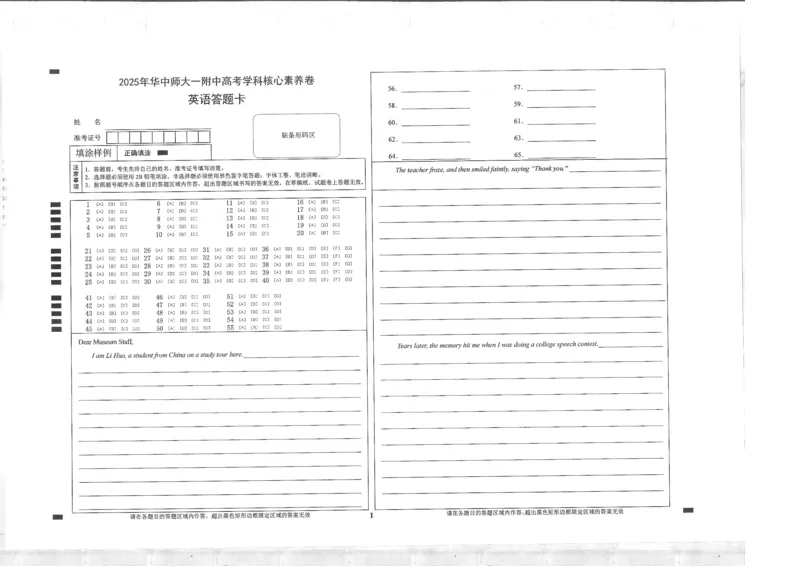 2025年华中师大一附中高考学科核心素养卷
英语答题卡
姓 名
准考证号
贴条形码区
填涂样例 正确填涂
注意事项
1. 答题前，考生先将自己的姓名、准考证号填写清楚。
2. 选择题必须使用2B铅笔填涂，非选择题必须使用黑色签字笔答题；字体工整、笔迹清晰。
3. 按照题号顺序在各题目的答题区域内作答，超出答题区域书写的答案无效，在草稿纸、试题卷上答题无效。
1 [A] [B] [C] 6 [A] [B] [C] 11 [A] [B] [C] 16 [A] [B] [C]
2 [A] [B] [C] 7 [A] [B] [C] 12 [A] [B] [C] 17 [A] [B] [C]
3 [A] [B] [C] 8 [A] [B] [C] 13 [A] [B] [C] 18 [A] [B] [C]
4 [A] [B] [C] 9 [A] [B] [C] 14 [A] [B] [C] 19 [A] [B] [C]
5 [A] [B] [C] 10 [A] [B] [C] 15 [A] [B] [C] 20 [A] [B] [C]
21 [A] [B] [C] [D] 26 [A] [B] [C] [D] 31 [A] [B] [C] [D] 36 [A] [B] [C] [D] [E] [F] [G]
22 [A] [B] [C] [D] 27 [A] [B] [C] [D] 32 [A] [B] [C] [D] 37 [A] [B] [C] [D] [E] [F] [G]
23 [A] [B] [C] [D] 28 [A] [B] [C] [D] 33 [A] [B] [C] [D] 38 [A] [B] [C] [D] [E] [F] [G]
24 [A] [B] [C] [D] 29 [A] [B] [C] [D] 34 [A] [B] [C] [D] 39 [A] [B] [C] [D] [E] [F] [G]
25 [A] [B] [C] [D] 30 [A] [B] [C] [D] 35 [A] [B] [C] [D] 40 [A] [B] [C] [D] [E] [F] [G]
41 [A] [B] [C] [D] 46 [A] [B] [C] [D] 51 [A] [B] [C] [D]
42 [A] [B] [C] [D] 47 [A] [B] [C] [D] 52 [A] [B] [C] [D]
43 [A] [B] [C] [D] 48 [A] [B] [C] [D] 53 [A] [B] [C] [D]
44 [A] [B] [C] [D] 49 [A] [B] [C] [D] 54 [A] [B] [C] [D]
45 [A] [B] [C] [D] 50 [A] [B] [C] [D] 55 [A] [B] [C] [D]
Dear Museum Staff,
I am Li Hua, a student from China on a study tour here.
请在各题目的答题区域内作答，超出黑色矩形边框限定区域的答案无效
1
56. 57.
58. 59.
60. 61.
62. 63.
64. 65.
The teacher froze, and then smiled faintly, saying "Thank you."
Years later, the memory hit me when I was doing a college speech contest.
请在各题目的答题区域内作答，超出黑色矩形边框限定区域的答案无效